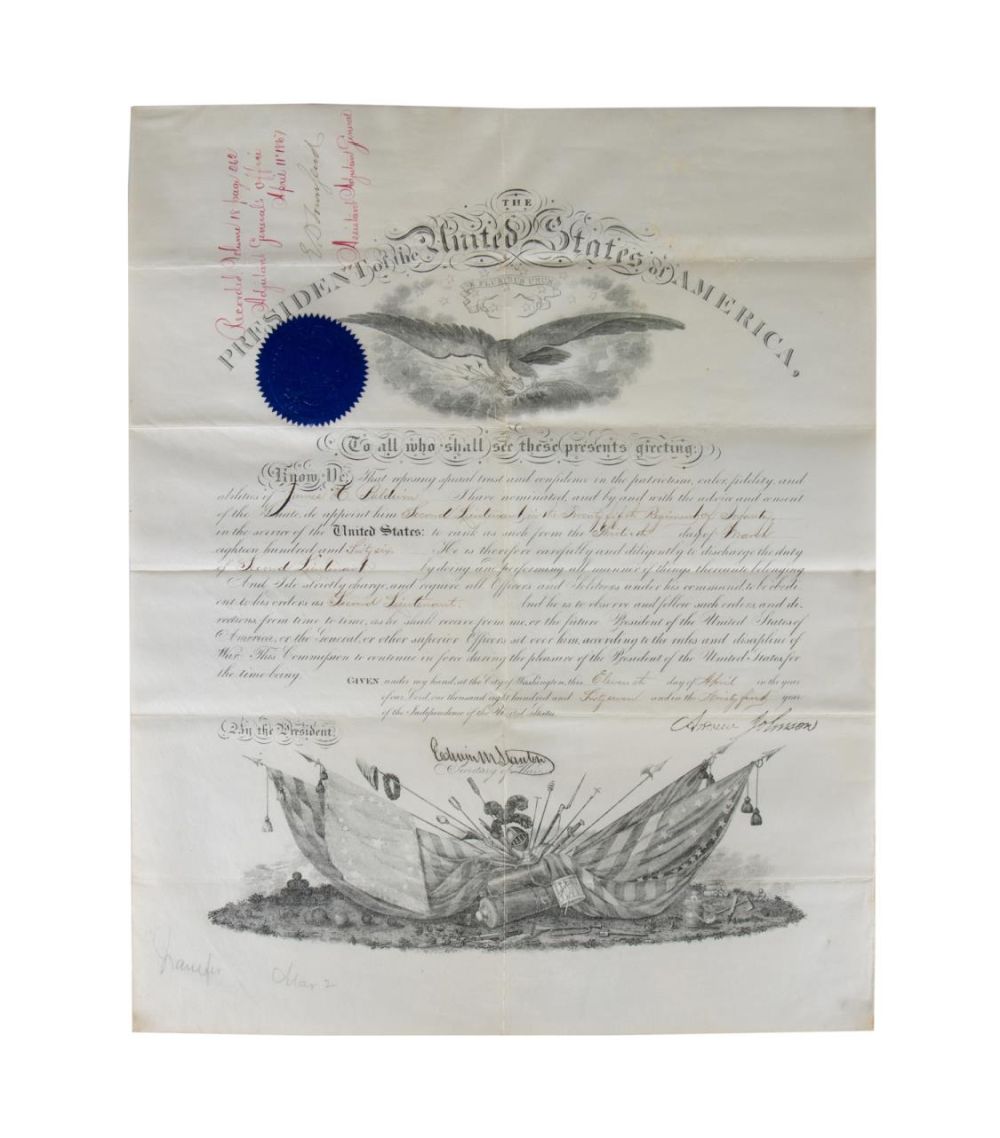 Recorded Volume 18 page
Adjutant General's Office
April 11th 1867
E D Townsend
Assistant Adjutant General
THE
PRESIDENT of the United States of AMERICA,
E PLURIBUS UNUM
To all who shall see these presents greeting:
Know Ye, That reposing special trust and confidence in the patriotism, valor, fidelity, and
abilities of James H. Baldwin I have nominated, and by and with the advice and consent
of the Senate, do appoint him Second Lieutenant in the Twenty fifth Regiment of Infantry
in the service of the United States: to rank as such from the day of March
eighteen hundred and Sixty six He is therefore carefully and diligently to discharge the duty
of Second Lieutenant by doing and performing all manner of things thereunto belonging
And I do strictly charge, and require all Officers and Soldiers under his command to be obedi-
ent to his orders as Second Lieutenant. And he is to observe and follow such orders, and di-
rections from time to time, as he shall receive from me, or the future President of the United States of
America, or the General, or other superior Officers set over him, according to the rules and discipline of
War. This Commission to continue in force during the pleasure of the President of the United States for
the time being.
GIVEN under my hand, at the City of Washington, this Eleventh day of April in the year
of our Lord, one thousand eight hundred and Sixty seven and in the Ninety first year
of the Independence of the United States.
Andrew Johnson
By the President
Edwin M Stanton
Secretary of War
Transfer
Mar 2